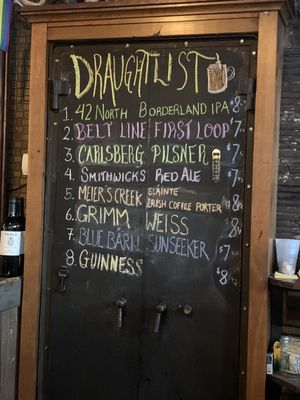 DRAUGHT LIST
1. 42 NORTH BORDERLAND IPA $8
2. BELT LINE FIRST LOOP $7
3. CARLSBERG PILSNER $7
4. SMITHWICKS RED ALE $7
5. MEIER'S CREEK SLAINTE IRISH COFFEE PORTER $8
6. GRIMM WEISS $8
7. BLUE BARN SUNSEEKER $7
8. GUINNESS $8